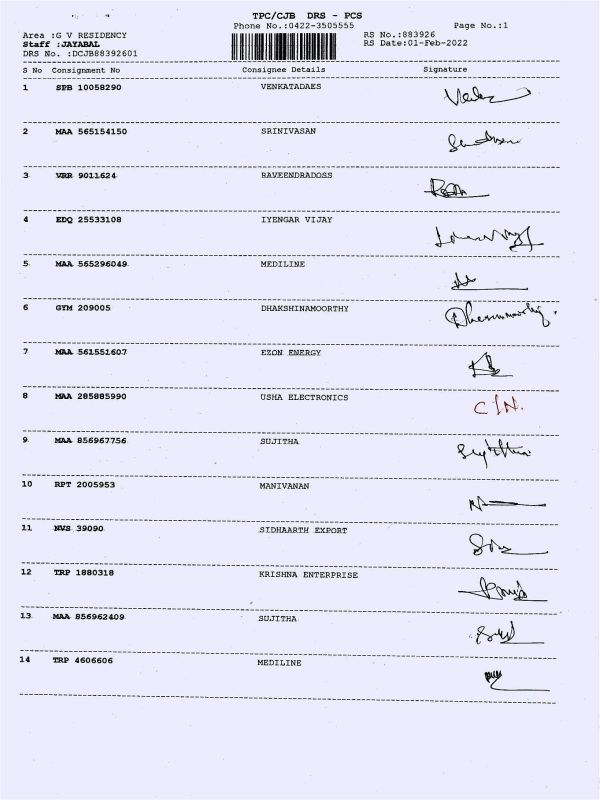 TPC/CJB DRS - PCS
Phone No.:0422-3505555 Page No.:1
Area :G V RESIDENCY RS No.:883926
Staff :JAYABAL RS Date:01-Feb-2022
DRS No. :DCJB88392601
S No Consignment No Consignee Details Signature
1 SPB 10058290 VENKATADAES
2 MAA 565154150 SRINIVASAN
3 VRR 9011624 RAVEENDRADOSS
4 EDQ 25533108 IYENGAR VIJAY
5 MAA 565296049 MEDILINE
6 GYM 209005 DHAKSHINAMOORTHY
7 MAA 561551607 EZON ENERGY
8 MAA 285885990 USHA ELECTRONICS
9 MAA 856967756 SUJITHA
10 RPT 2005953 MANIVANAN
11 NVS 39090 SIDHAARTH EXPORT
12 TRP 1880318 KRISHNA ENTERPRISE
13 MAA 856962409 SUJITHA
14 TRP 4606606 MEDILINE